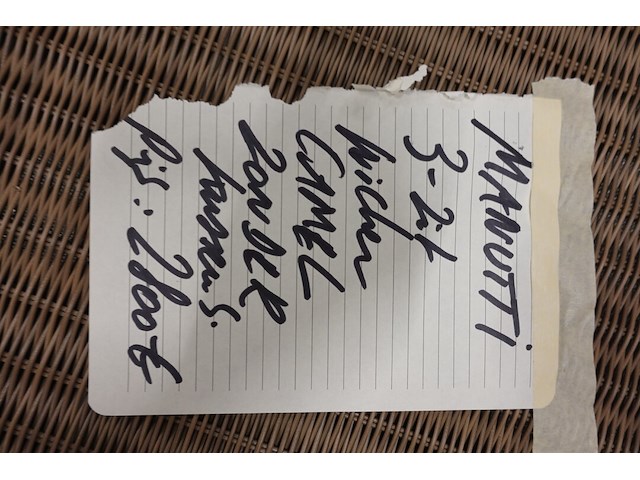 MANUTTI
3-zit
Wicker
CAMEL
ZONDER
kussens.
Prijs: 2800€